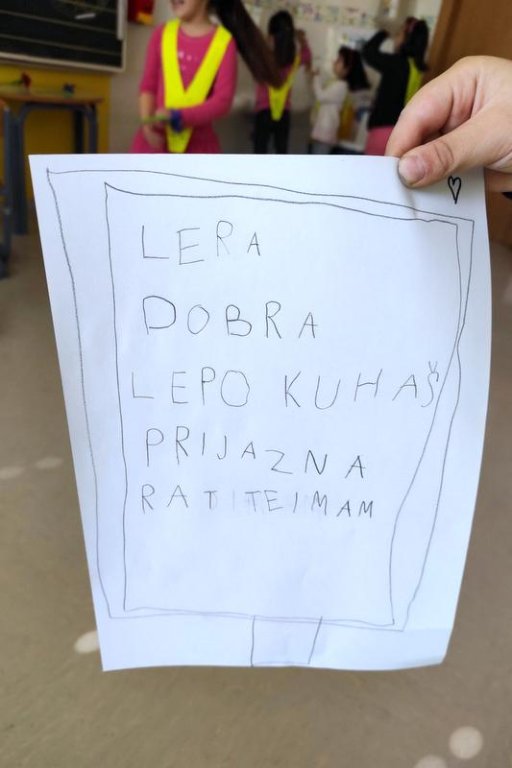 LERA
DOBRA
LEPO KUHAŠ
PRIJAZNA
RAT TEIMAM